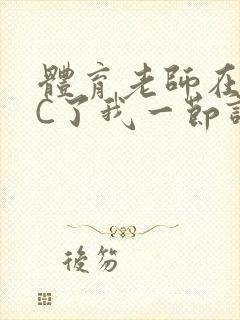 體育老師在
C了我一節
後笏